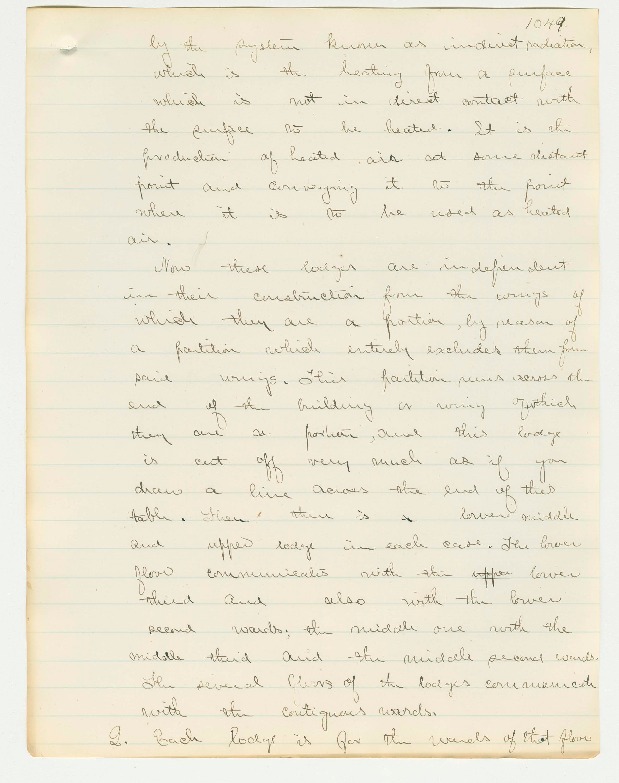 1049
by the system known as indirect radiation,
which is the heating from a surface
which is not in direct contact with
the surface to be heated. It is the
production of heated air at some distant
point and conveying it to the point
where it is to be used as heated
air.
Now these lodges are independent
in their construction from the wings of
which they are a portion, by reason of
a partition which entirely excludes them from
said wings. This partition runs across the
end of the building or wing of which
they are a portion, and this lodge
is cut off very much as if you
draw a line across the end of this
table. Then there is a lower middle
and upper lodge in each case. The lower
floor communicates with the upper lower
third and also with the lower
second wards; the middle one with the
middle third and the middle second wards.
The several floors of the lodges communicate
with the contiguous wards.
Q. Each lodge is for the wards of that floor